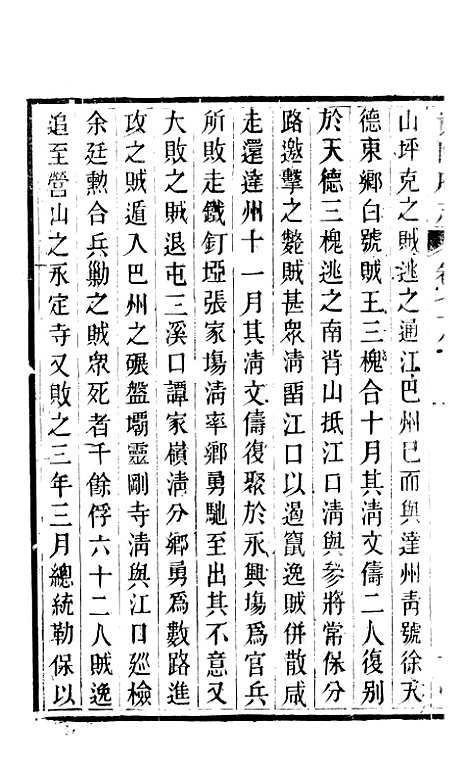 山坪克之賊逃之通江巴州已而與達州靑號徐天
德東鄉白號賊王三槐合十月其淸文儔二人復別
於天德三槐逃之南背山抵江口淸與參將常保分
路邀擊之斃賊甚眾淸畱江口以遏竄逸賊併散咸
走還達州十一月其淸文儔復聚於永興塲爲官兵
所敗走鐵釘埡張家塲淸率鄉勇馳至出其不意又
大敗之賊退屯三溪口譚家嶺淸分鄉勇爲數路進
攻之賊遁入巴州之碾盤壩靈剛寺淸與江口巡檢
余廷勲合兵勦之賊眾死者千餘俘六十二人賊逸
追至營山之永定寺又敗之三年三月總統勒保以